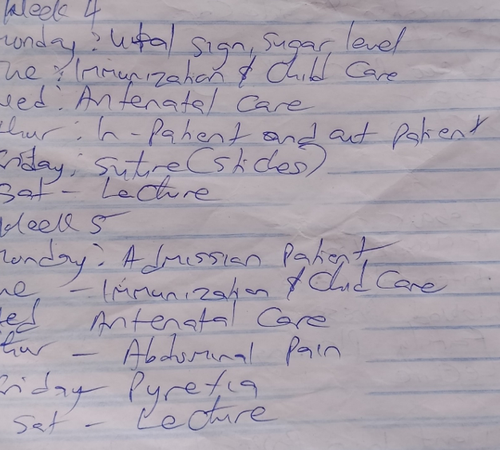 Week 4
onday : Vital sign, sugar level
ue : Immunization & Child Care
ed : Antenatal Care
hur : In-Patient and out patient
riday : Suture (Stiches)
Sat - Lecture
Week 5
onday : Admission Patient
ue - Immunization & Child Care
ed Antenatal Care
hur - Abdominal Pain
riday - Pyrexia
Sat - Lecture